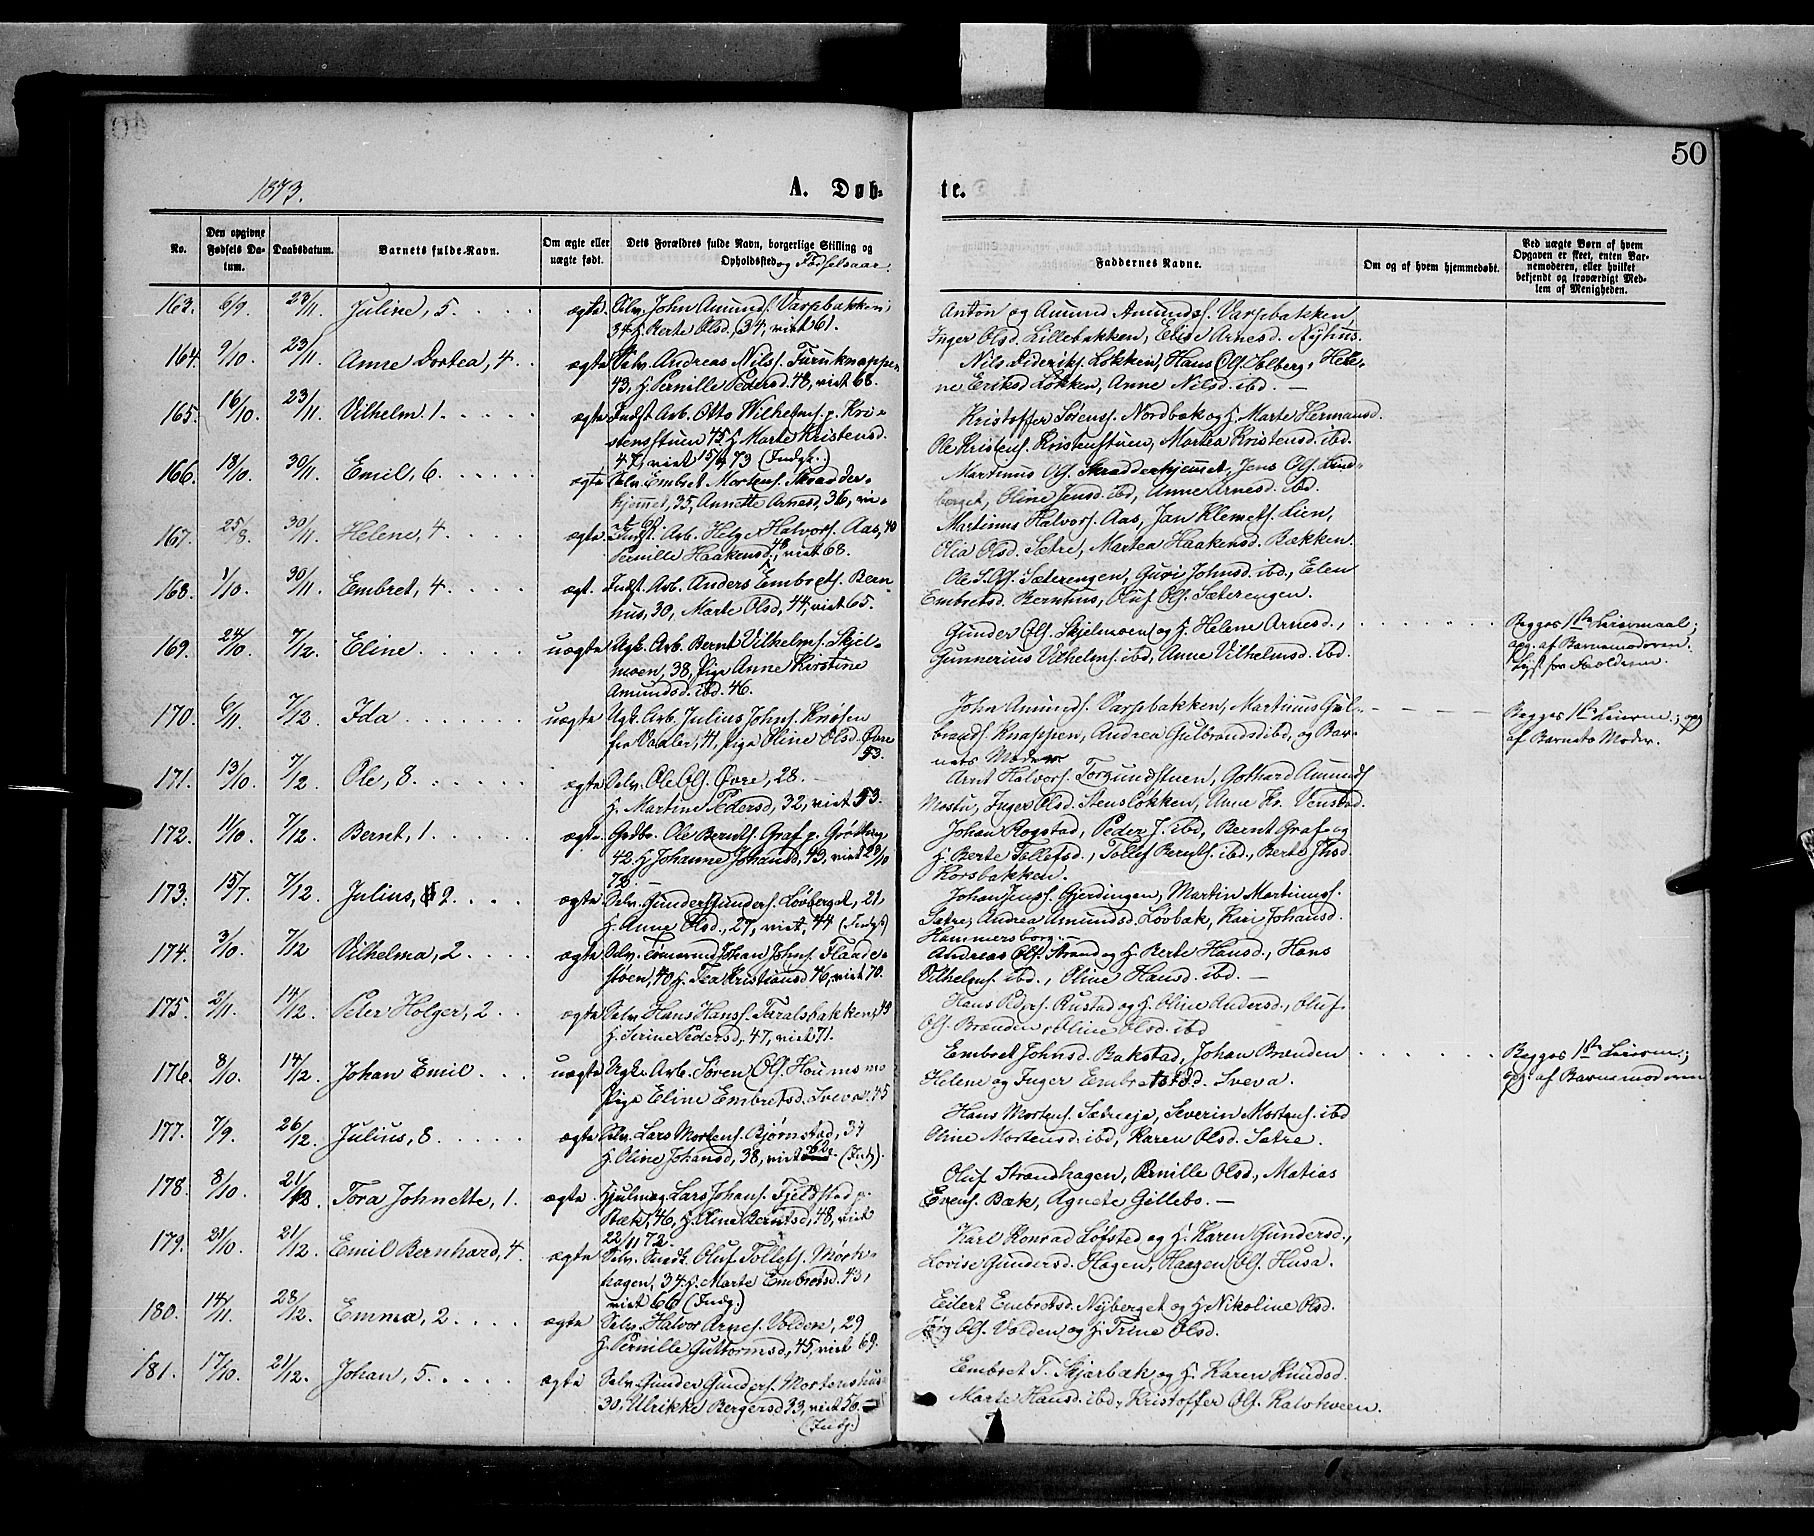 50
1873.
A. Døb-
te.
No.
Den opgivne Fødsels Datum.
Daabsdatum.
Barnets fulde Navn.
Om ægte eller uægte født.
Dets Forældres fulde Navn, borgerlige Stilling og Opholdssted og Fødselsaar.
Faddernes Navne.
Om og af hvem hjemmedøbt.
Ved uægte Børn af hvem Opgaven er skeet, enten Barnemoderen, eller hvilket bekjendt og troværdigt Medlem af Menigheden.
163. 6/9 23/11 Juline, 5. ægte Selv. John Amunds. Varpebakken,
34 H. Berte Olsd., 34, viet 61.
Anton og Amund Amunds. Varpebakken
Inger Olsd. Lillebakken, Elise Arnesd. Nyhus.
164. 9/10 23/11 Anne Dortea, 4 ægte Selv. Andreas Nils. Furuknappen
43, H. Pernille Pedersd. 48, viet 68.
Nils Dideriks. Løkken, Hans Ols. Solberg, Hele-
ne Eriksd. Løkken, Anne Nilsd. ibd. —
165. 16/10 23/11 Vilhelm. 1 ægte Indst. Arb. Otto Wilhelms. p. Kri-
stensstuen 45 H. Marte Kristensd.
47, viet 15/4 73 (Indg.)
Kristoffer Sørens. Nordbæk og H. Marte Hermansd.
Ole Kristens. Kristenstuen, Martea Kristensd. ibd.
166. 18/10 30/11 Emil, 6. ægte Selv. Embret Mortens. Skrædder-
hjemmet, 35, Annette Arnesd, 36, vi-
et 60.
Martinus Ols. Skrædderhjemmet, Jens Ols. Lind-
berget, Oline Jensd. ibd, Anne Arnesd. ibd.
167. 25/8 30/11 Helene, 4 ægte Indst. Arb. Helge Halvors. Aas, 40
Pernille Haakensd, 48, viet 68.
Martinus Halvors. Aas, Jan Klemets. Lien,
Elia Olsd. Sætre, Martea Haakensd. Bækken.
168. 1/10 30/11 Embret, 4 ægt. Indst. Arb. Anders Embrets. Bern-
hus, 30, Marte Olsd, 44, viet 65.
Ole S. Ols. Sæterengen, Guri Johnsd. ibd., Elen
Embretsd. Bernhus, Oluf Ols. Sæterengen.
169. 24/10 7/12. Eline uægte Ugk. Arb. Bernt Vilhelms. Skjel-
moen, 38, Pige Anne Kirstine
Amundsd. ibd. 46.
Gunder Ols. Skjelmoen og H. Helene Arnesd.,
Gunnerius Vilhelms. ibd, Anne Vilhelmsd. ibd.
Begges 1ste Leiermaal;
opg. af Barnemoderen.
170. 6/11. 7/12. Ida uægte Ugk. Arb. Julius Johns. Knosen
fra Vaaler, 41, Pige Oline Olsd. Øvre
53.
John Amunds. Varpebakken, Martinus Gul-
brands. Knappen, Andrea Gulbrandsd. ibd, og Bar-
nets Moder
Begges 1ste Leierm.; opg
af Barnets Moder.
171. 13/10 7/12 Ole, 8. ægte Selv. Ole Ols. Øvre, 28.
H. Martine Pedersd, 32, viet 53.
Arnt Halvors. Torgundstuen, Gothard Amunds
Mostu, Inger Olsd. Stensløkken, Anne Kr. Venstad.
172. 11/10 7/12. Bernt, 1 ægte Gdbr. Ole Bernts. Graf p. Grøtting
42. H. Johanne Johansd, 49, viet 29/10
72. —
Johan Rogstad, Peder J. ibd, Bernt Graf og
H. Berte Tollefsd., Tollef Bernts. ibd., Berte Jhsd.
Korsbakken.
173. 15/7. 7/12 Julius, 2. ægte Selv. Gunder Gunders. Lovberget, 21,
H. Anne Olsd., 27, viet, 44 (Indg.)
Johan Jens. Gjerdingen, Martin Martinus.
Sætre, Andrea Amundsd Lovbak, Kari Johansd.
Hammersborg.
174. 3/10. 7/12 Vilhelma, 2 ægte Selv. Tømrmd Johan Johns. Flaade-
støen, 40 H. Tea Kristiansd 46, viet 70.
Andreas Ols. Strand og H. Berte Hansd., Hans
Vilhelms. ibd., Oline Hansd. ibd. —
175. 2/11. 14/12. Peter Holger, 2 ægte Selv. Hans Hans. Taralsbakken, 49
H. Serine Pedersd, 47, viet 71.
Hans Peders. Rustad og H. Oline Andersd., Oluf
Ols. Brænden, Oline Olsd. ibd
176. 8/10. 14/12. Johan Emil uægte Ugk. Arb. Søren Ols. Houmomo
Pige Eline Embretsd. Sveva. 45
Embret Johnsd. Bakstad, Johan Brænden
Helene og Inger Embretsd. Sveva.
Begges 1ste Leierm.;
opg. af Barnemoderen
177. 7/9. 26/12. Julius, 8. ægte Selv. Lars Mortens. Bjørnstad, 34
H. Oline Johansd, 38, viet 62. (Indg).
Hans Mortens. Sætreeje, Severin Mortens. ibd
Oline Mortensd. ibd, Karen Olsd. Sætre.
178. 8/10. 21/12. Tora Johnette, 1. ægte. Hjulmag. Lars Johans. Fjeldstad p.
Bæk, 46, H. Oline Berntsd, 48, viet
22/11 72.
Oluf Strandhagen, Pernille Olsd., Matias
Evens. Bæk, Agnete Gillebo. —
179. 31/10. 21/12. Emil Bernhard, 4. ægte Selv. Snedk. Oluf Tollefs. Mørk-
hagen, 34 H. Marte Embretsd. 43,
viet 66 (Indg.)
Karl Konrad Løfsted og H. Karen Gundersd.,
Lovise Gundersd. Hagen, Haagen Ols. Husa.
180. 14/11. 28/12. Emma, 2 ægte Selv. Halvor Arnes. Volden, 29
H. Pernille Guttormsd., 45, viet 69.
Eilert Embretsd. Nyberget og H. Nikoline Olsd.
Jørg Ols. Volden og H. Trine Olsd.
181. 17/10. 21/12. Johan, 5. ægte Selv. Gunder Gunders. Mortenshus
30, Ulrikke Bergersd 33, viet 56.
(Indg.)
Embret T. Skjærbæk og H. Karen Knudsd.
Marte Hansd. ibd., Kristoffer Ols. Kalvhveen.